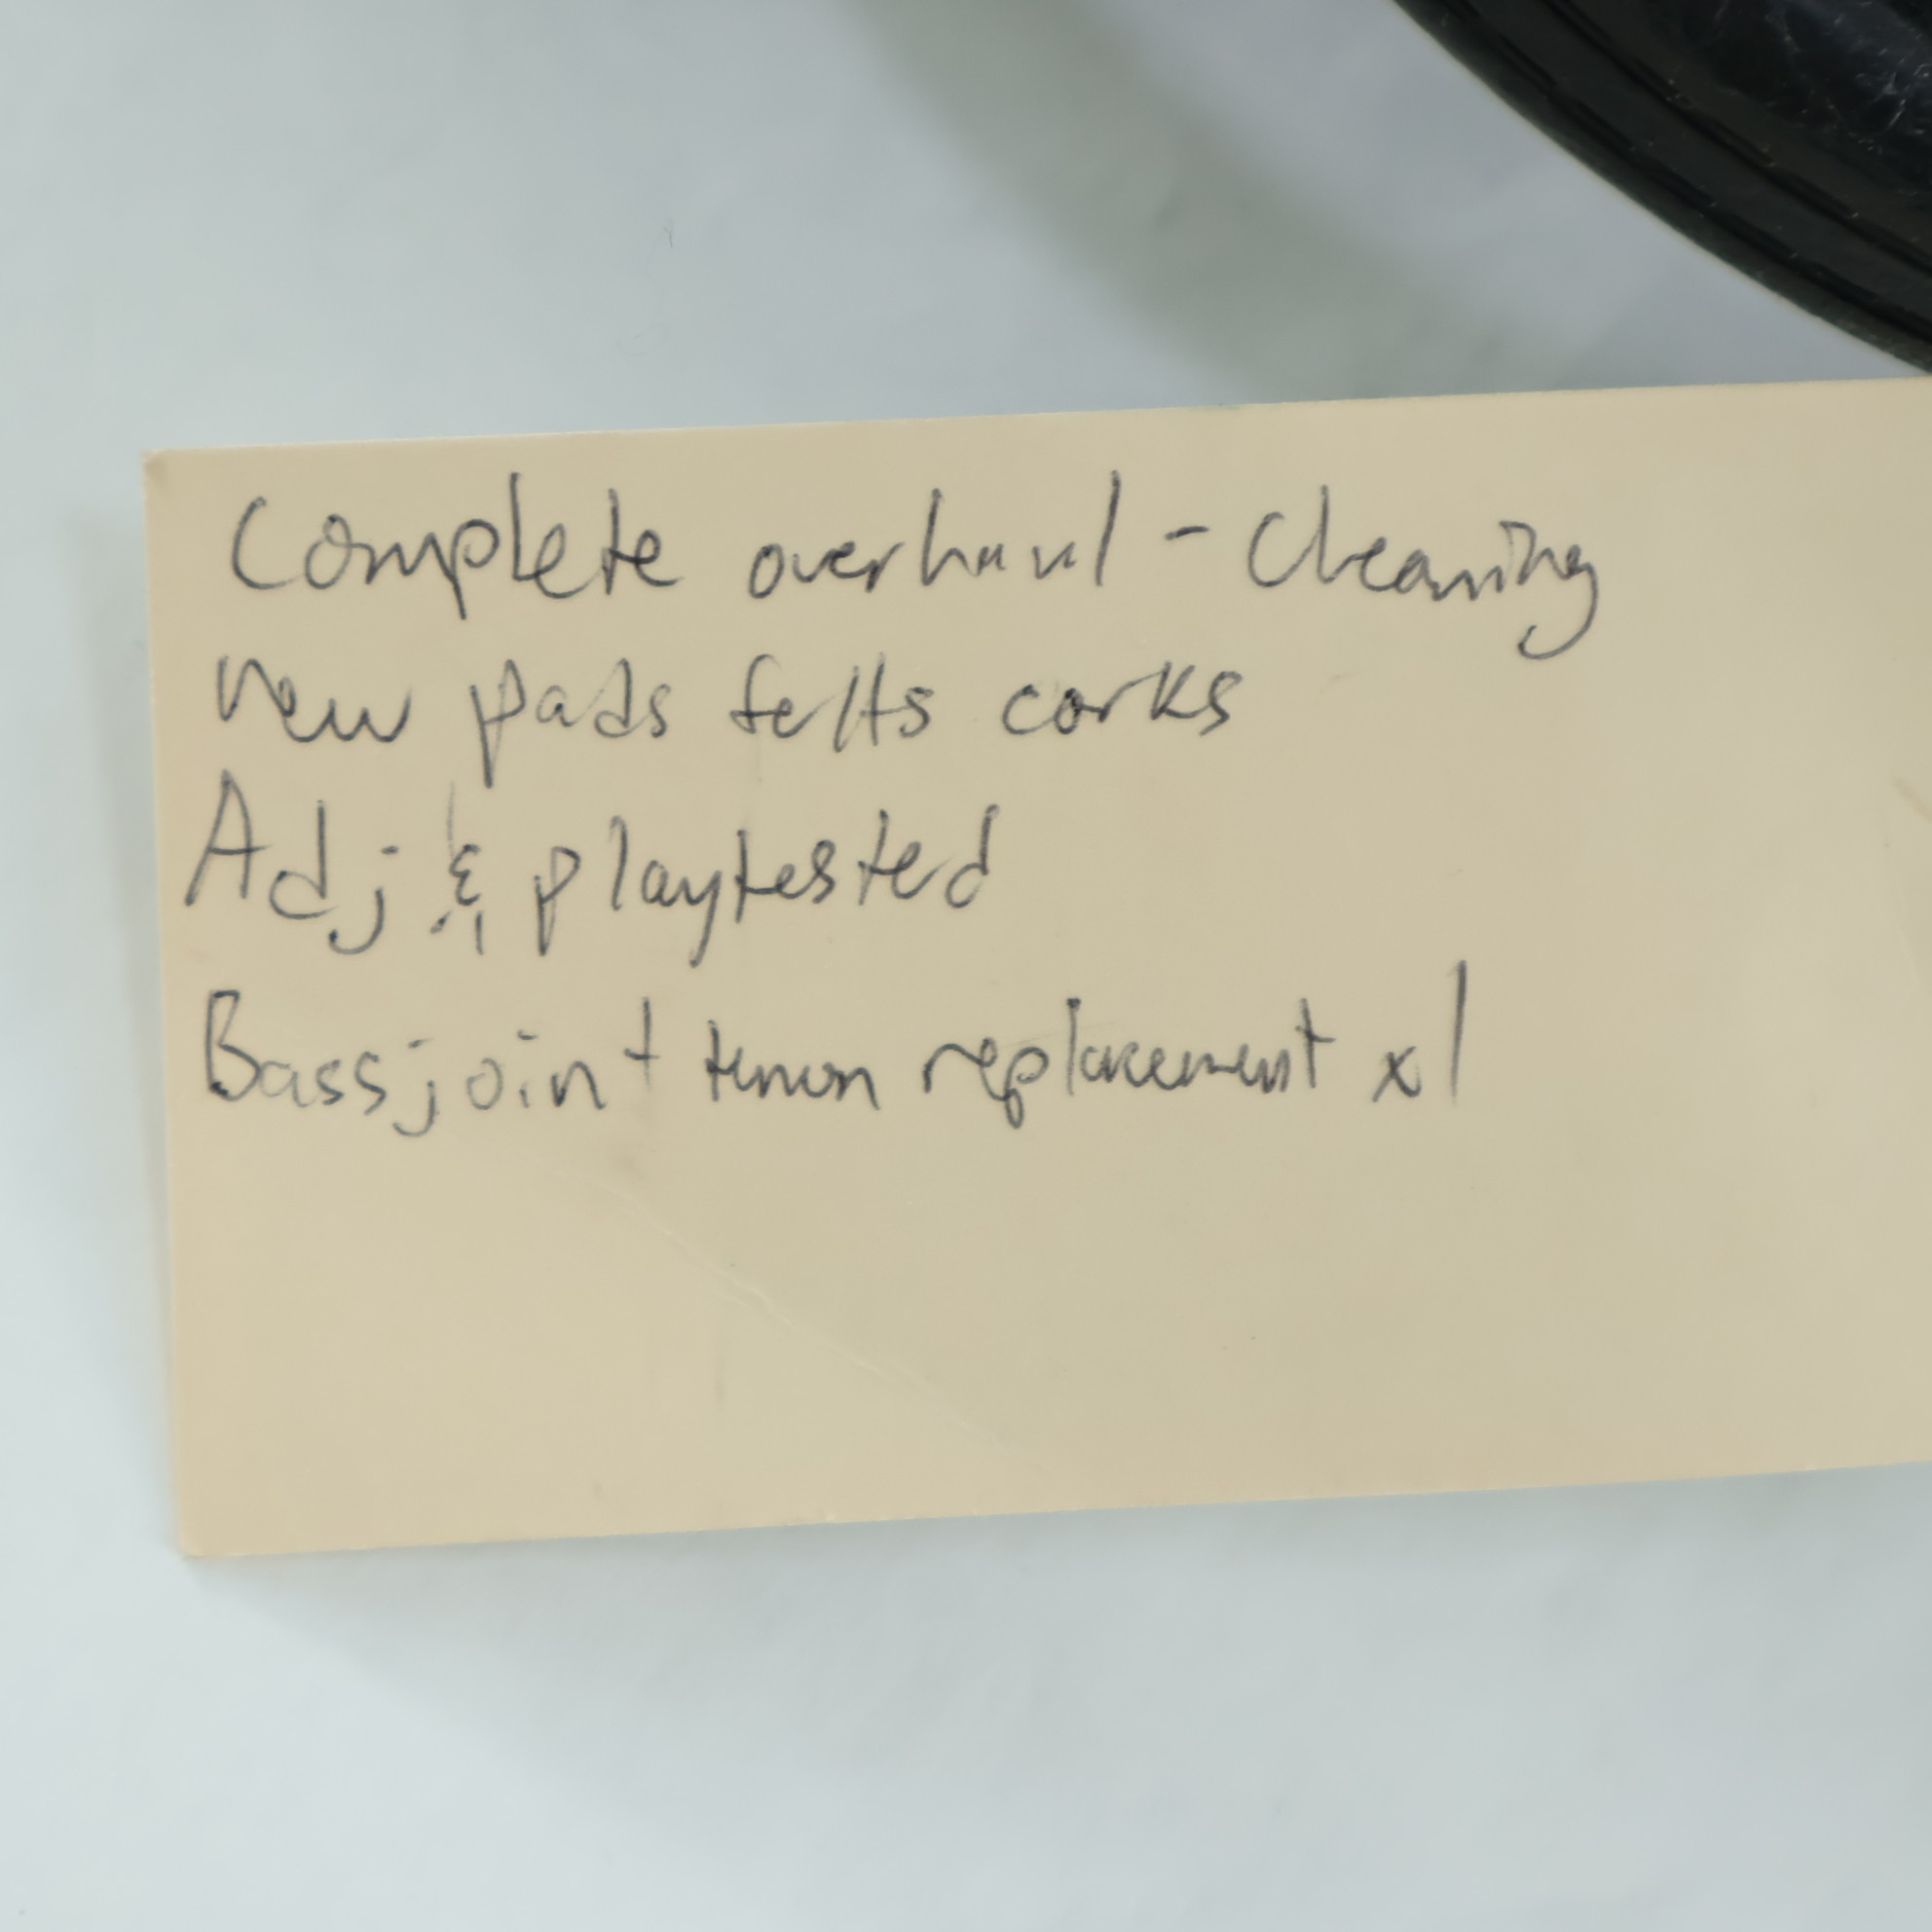 Complete overhaul - Cleaning
new pads felts corks
Adj & playtested
Bass joint tenon replacement x1